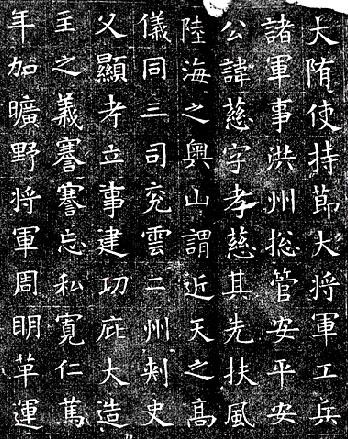 大隋使持節大將軍工兵
諸軍事洪州揔管安平安
公諱慈字孝慈其先扶風
陸海之奧山謂近天之高
儀同三司兗雲二州刾史
父顯考立事建功庇大造
主之義謇謇忘私寬仁篤
年加曠野將軍周明革運